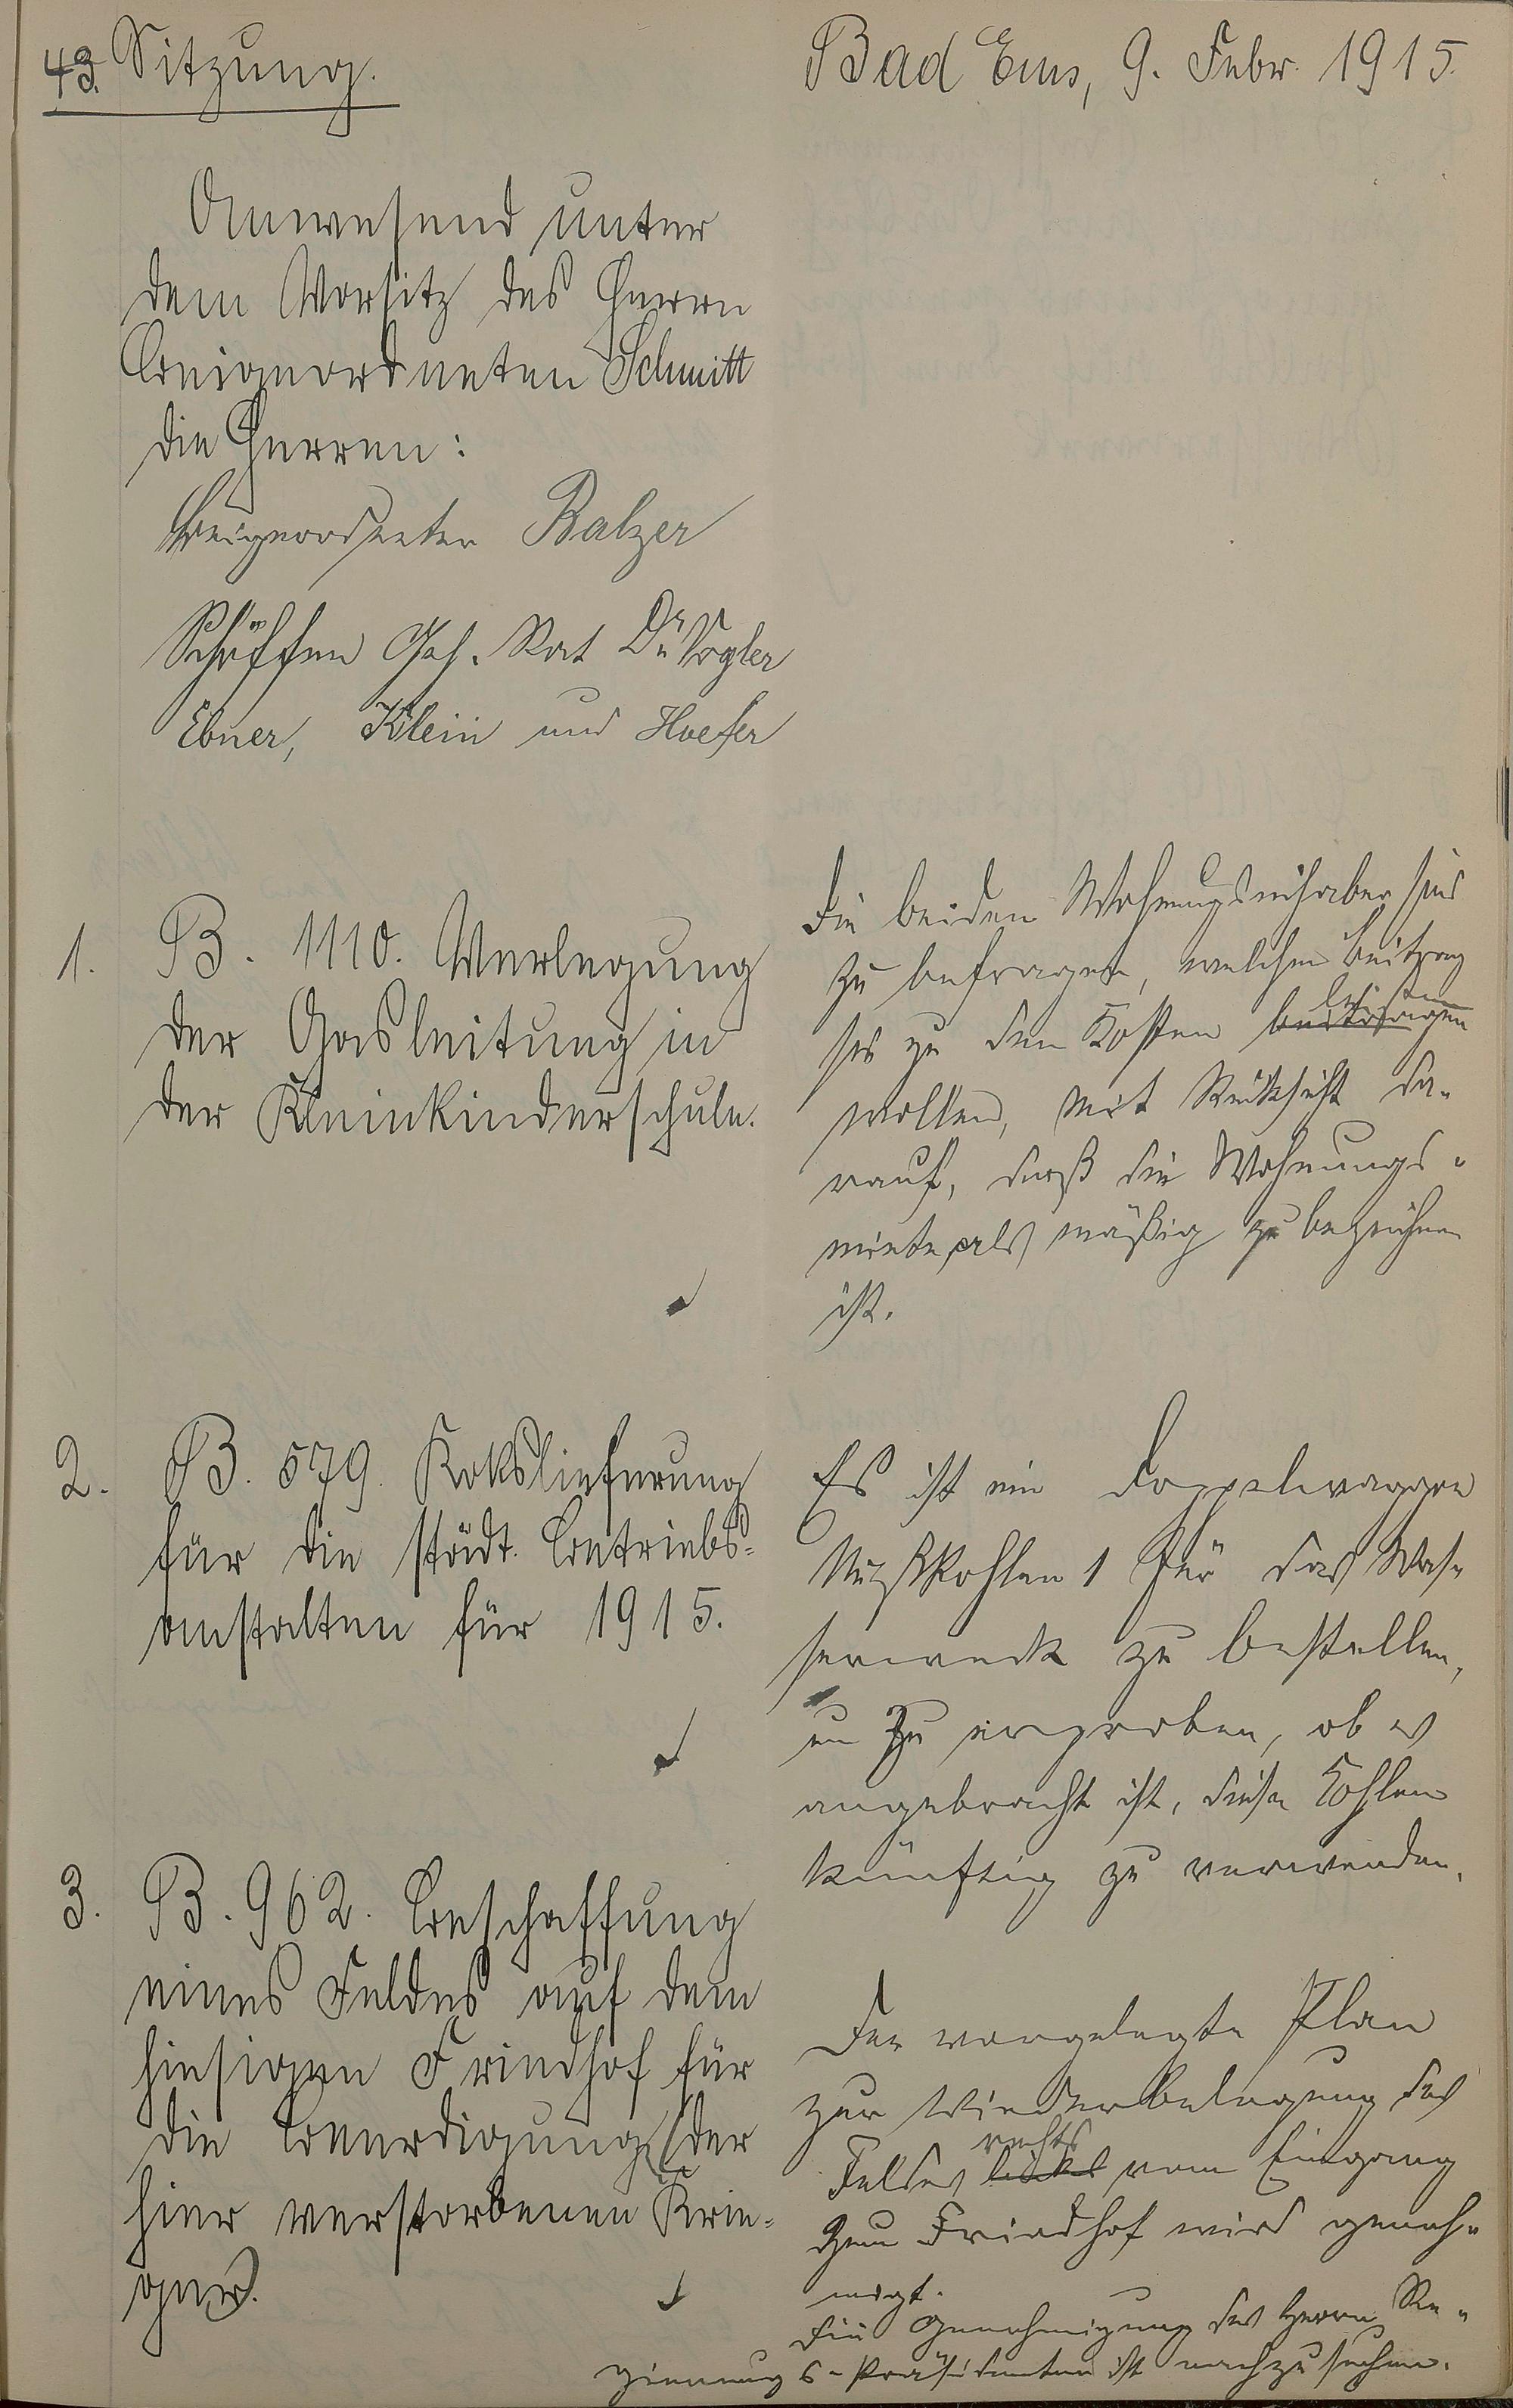 43. Sitzung.
Bad Ems, 9. Febr. 1915.
Anwesend unter
dem Vorsitz des Herrn
Beigeordneten Schmitt
die Herren:
Beigeordneter Balzer
Schöffen Geh. Rat Dr Vogler
Ebner, Klein und Hoefer
1. B. 1110. Verlegung
der Gasleitung in
der Kleinkinderschule.
Die beiden Wohnungsinhaber sind
zu befragen, welchen Beitrag
sie zu den Kosten beitragen leisten
wollen, mit Rücksicht da-
rauf, daß die Wohnungs-
miete als mäßig zu bezeichnen
ist.
2. B. 579. Kokslieferung
für die städt. Betriebs-
anstalten für 1915.
Es ist ein Doppelwaggon
Nußkohlen 1 für das Was-
serwerk zu bestellen,
um zu erproben, ob es
angebracht ist, diese Kohlen
künftig zu verwenden.
3. B. 962. Beschaffung
eines Feldes auf dem
hiesigen Friedhof für
die Beerdigung (der
hier verstorbenen Krie-
ger).
Der vorgelegte Plan
zur Wiederbelegung des
Feldes links rechts vom Eingang
zum Friedhof wird geneh-
migt.
Die Genehmigung des Herrn Re-
gierungs-Präsidenten ist nachzusuchen.